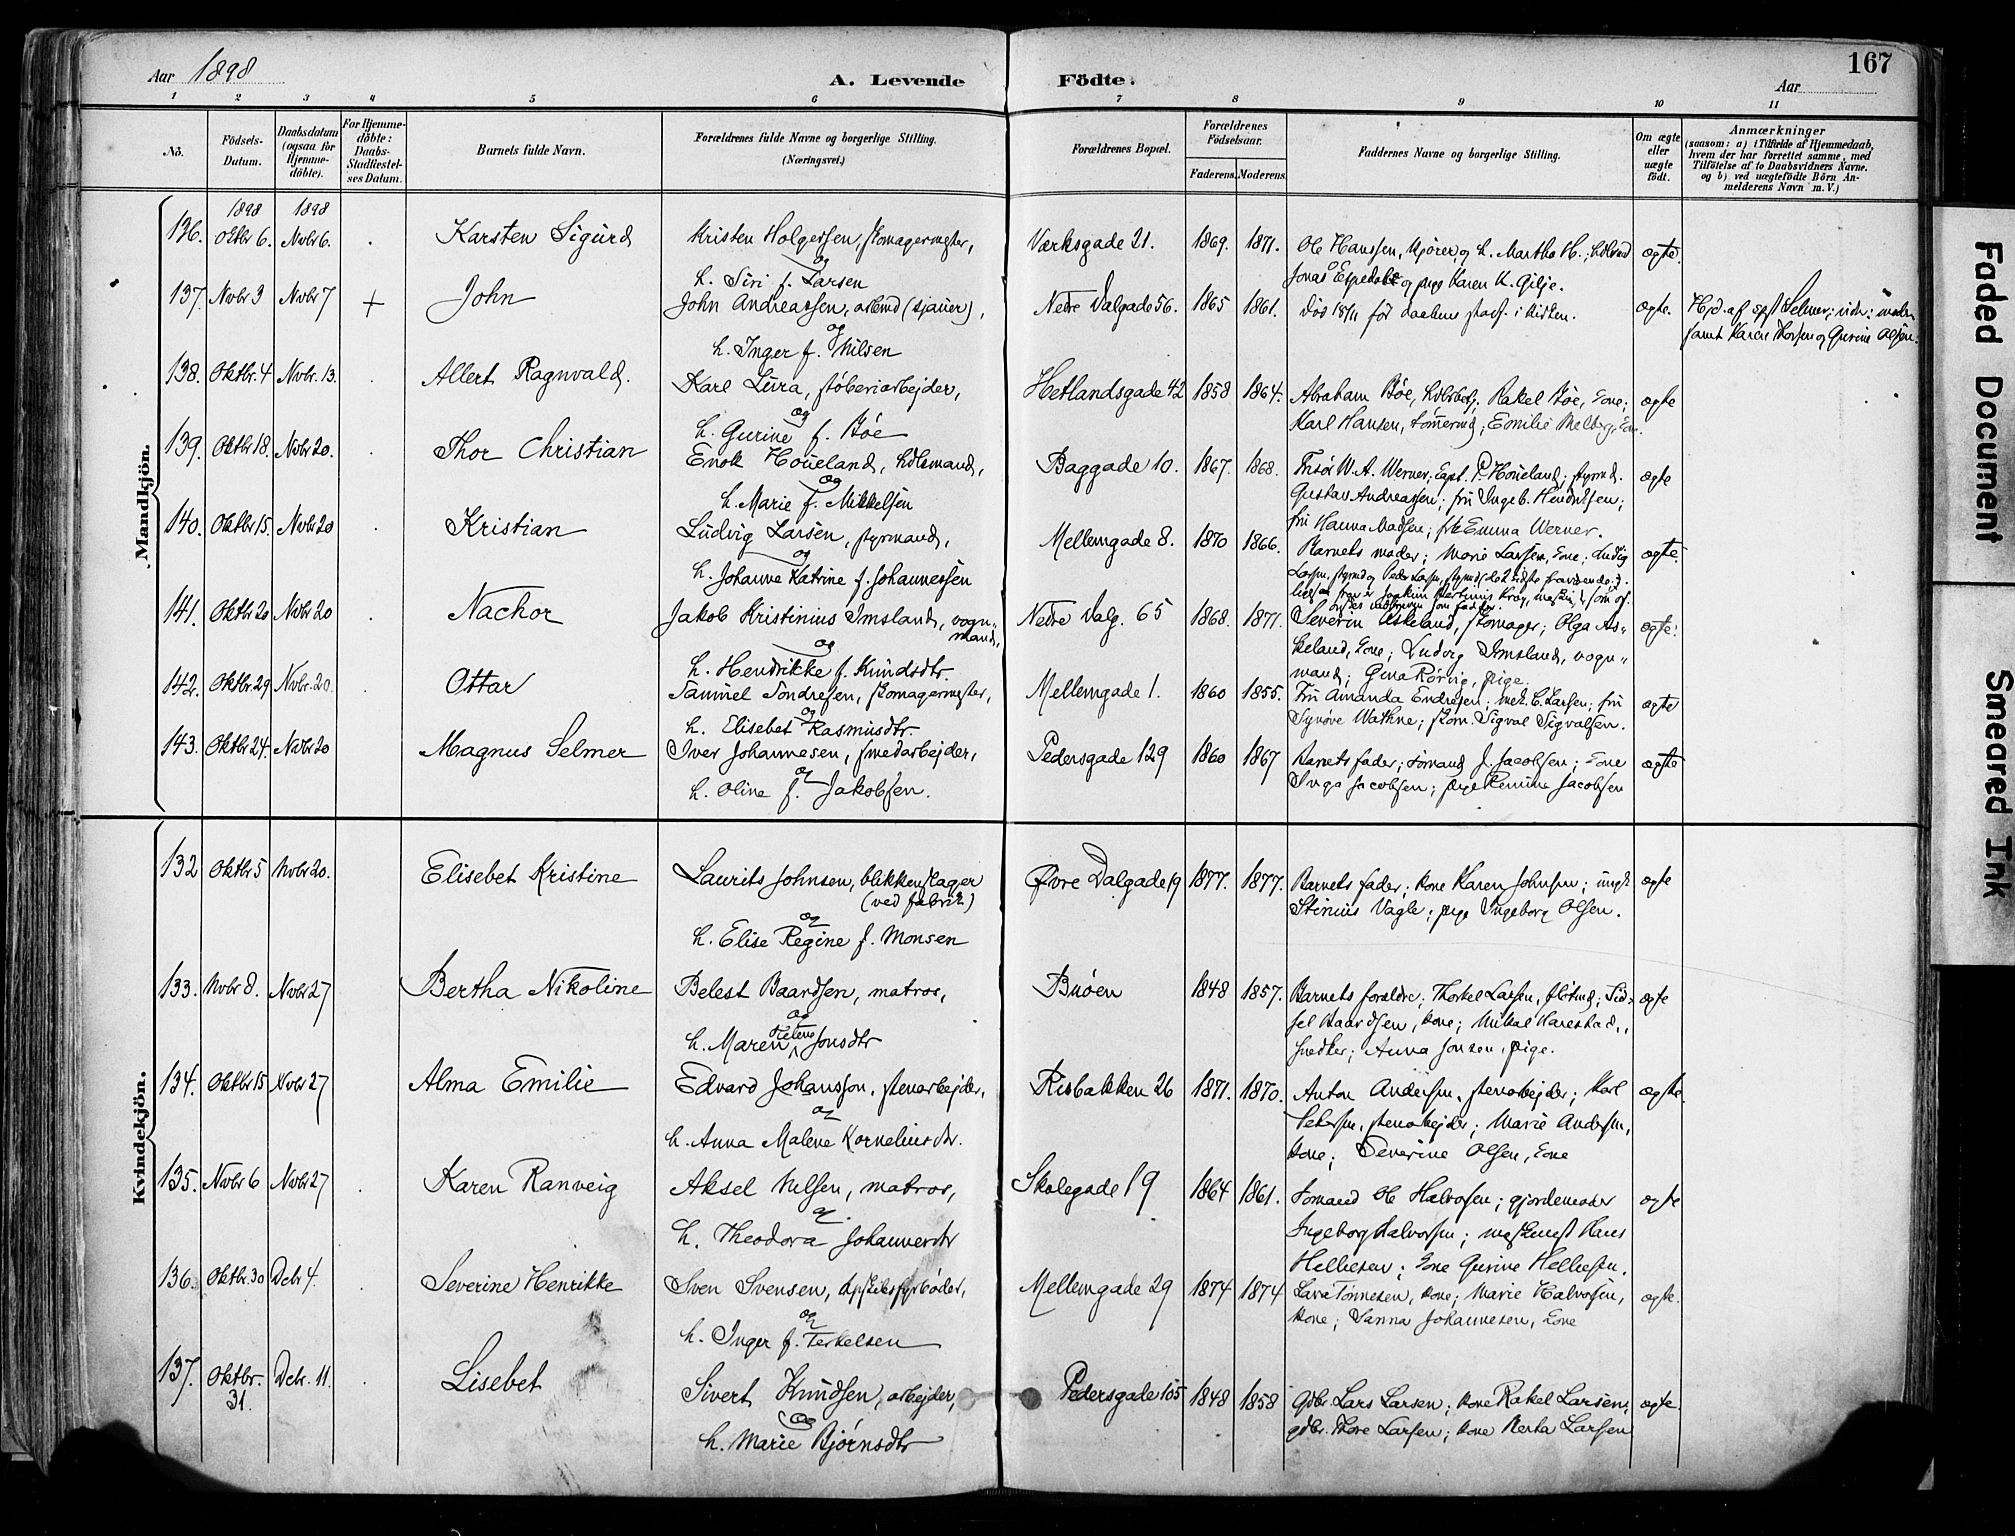 Aar 1898
A. Levende Födte.
167
Aar
1 2 3 4 5 6 7 8 9 10 11
No.
Födsels-Datum.
Daabsdatum (ogsaa for Hjemme-döbte).
For Hjemme-döbte: Daabs-Stadfæstel-ses Datum.
Barnets fulde Navn.
Forældrenes fulde Navne og borgerlige Stilling. (Næringsvei.)
Forældrenes Bopæl.
Forældrenes Födselsaar.
Faderens. Moderens.
Faddernes Navne og borgerlige Stilling.
Om ægte eller uægte födt.
Anmærkninger
(saasom: a) i Tilfælde af Hjemmedaab, hvem der har forrettet samme, med Tilföielse af to Daabsvidners Navne. og b) ved uægtefödte Börn An-melderens Navn m. V.)
Mandkjön.
1898 1898
136. Oktbr 6. Nvbr 6. Karsten Sigurd Kristen Holgersen, skomagermester, Værksgade 21. 1869. 1871. Ole Hanssen, kjører og h. Martha H.; ægte.
og
h. Siri f. Larsen
Jonas Espedal og pige Karen K. Gilje.
137. Nvbr 3 Nvbr 7 + John John Andreassen, arbmd (sjauer), Nedre Dalgade 56. 1865 1861. Død 18/11 før daabens stadf. i kirken. ægte. Hjd. af
og
h. Inger f. Nilsen
samt Karen Thorsen og Gurine Olsen.
138. Oktbr. 4 Nvbr. 13. Allert Ragnvald. Karl Lura, støberiarbejder, Hetlandsgade 42 1858 1864. Abraham Bøe, Rakel Bøe, kone; ægte
og
h. Gurine f. Bøe
Karl Hansen, tømermd; Emilie Melberg,
139. Oktbr 18. Nvbr 20. Thor Christian Enok Houeland, hdlsmand, Baggade 10. 1867. 1868. Frisør W. A. Werner; Capt. P. Houeland; styrmd. ægte
og
h. Marie f. Mikkelsen
Gustav Andreassen; fru Ingeb. Hendriksen;
fru Hanna Madsen; frk Emma Werner.
140. Oktbr 15. Nvbr 20 Kristian Ludvig Larsen, styrmand, Mellemgade 8. 1870 1866. Barnets moder; Marie Larsen, kone; Ludvig ægte.
og
h. Johanne Katrine f. Johannessen
Larsen, styrmd og Peder Larsen, styrmd (de 2 sidste fraværende).
141. Oktbr 20 Nvbr 20 Nachor Jakob Kristinius Imsland, vogn-mand, Nedre Dalg. 65 1868. 1871. Severin Askeland, skomager; Olga As- ægte.
og
h. Hendrikke f. Knudsdtr.
keland, kone; Ludvig Imsland, vogn-
mand; Gina Rørvig, pige.
142. Oktbr. 29 Nvbr. 20. Ottar Samuel Sondresen, skomagermester, Mellemgade 1. 1860 1855. Fru Amanda Endresen; mek. C. Larsen; fru ægte
og
h. Elisebet Rasmusdtr.
Synøve Wathne; skom. Sigval Sigvalsen.
143. Oktbr 24. Nvbr 20 Magnus Selmer Iver Johannesen, smedarbejder, Pedersgade 129 1860 1867 Barnets fader; sømand J. Jacobsen; kone ægte
og
h. Oline f. Jakobsen.
Inga Jacobsen; pige Remine Jacobsen
Kvindekjön.
132 Oktbr 5 Nvbr 20. Elisebet Kristine Laurits Johnsen, blikkenslager Øvre Dalgade 19 1877. 1877. Barnets fader; kone Karen Johnsen; ungk. ægte
(ved fabrik)
og
h. Elise Regine f. Monsen
Stinius Vagle; pige Ingeborg Olsen.
133. Nvbr 8. Nvbr 27 Bertha Nikoline Belest Baardsen, matros, Buøen 1848 1857. Barnets forældre; Thorkel Larsen, Sid- ægte
og
h. Maren Helene Jonsdtr
sel Baardsen, kone; Mikal Harestad,
snedker; Anna Jonsen, pige.
134. Oktbr 15 Nvbr 27 Alma Emilie Edvard Johansson, stenarbejder, Risbakken 26 1871. 1870. Anton Andersen, stenarbejder; Karl ægte.
og
h. Anna Malene Korneliusdtr.
Petersen, stenarbejder; Marie Andersen,
kone; Severine Olsen, kone
135. Nvbr 6 Nvbr 27 Karen Ranveig Aksel Nilsen, matros, Skolegade 19 1864 1861. Sømand Ole Halvorsen; gjordemoder ægte
og
h. Theodora Johannesdtr
Ingeborg Halvorsen; Hans
Helliesen; kone Gurine Helliesen.
136. Oktbr. 30 Dcbr 4. Severine Henrikke Sven Svensen, dpskibsfyrbøder, Mellemgade 29 1874 1874 Lava Tønnesen, kone; Marie Halvorsen, ægte.
og
h. Inger f. Terkelsen
kone; Sanna Johannesen, kone
137. Oktbr. 31. Dcbr. 11. Lisebet Sivert Knudsen, arbejder, Pedersgade 105 1848 1858 Gdbr. Lars Larsen; kone Rakel Larsen; ægte.
og
h. Marie Bjørnsdtr
gdbr. Thore Larsen; kone Berta Larsen
Faded Document
Smeared Ink